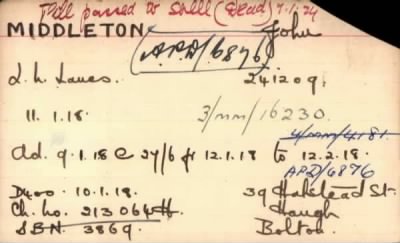 passed to (Dead) 7.1.24
MIDDLETON John
(A.P.D/6846)
L. N. Lancs. 241209.
11.1.18. 3/MM/16230.
4/MM/4181.
Ad. 9.1.18 @ 27/6 fr 12.1.18 to 12.2.18.
APD/6876
D400. 10.1.18. 39 Halstead St.
Ch. No. 213064 H. Haugh
S.B.N. 3869. Bolton.